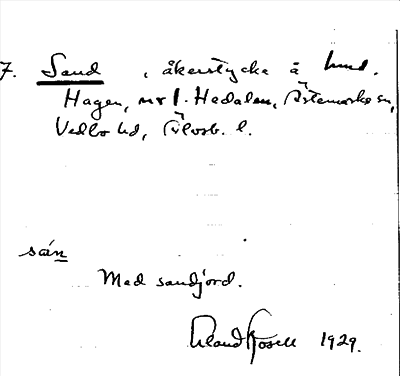 7. Sand, åkerstycke å hmd.
Hagen, nr 1. Hedalen, Ärtemarks sn,
Vedbo hd, Älvsb. l.
sán
Med sandjord.
Erland Rosell 1929.